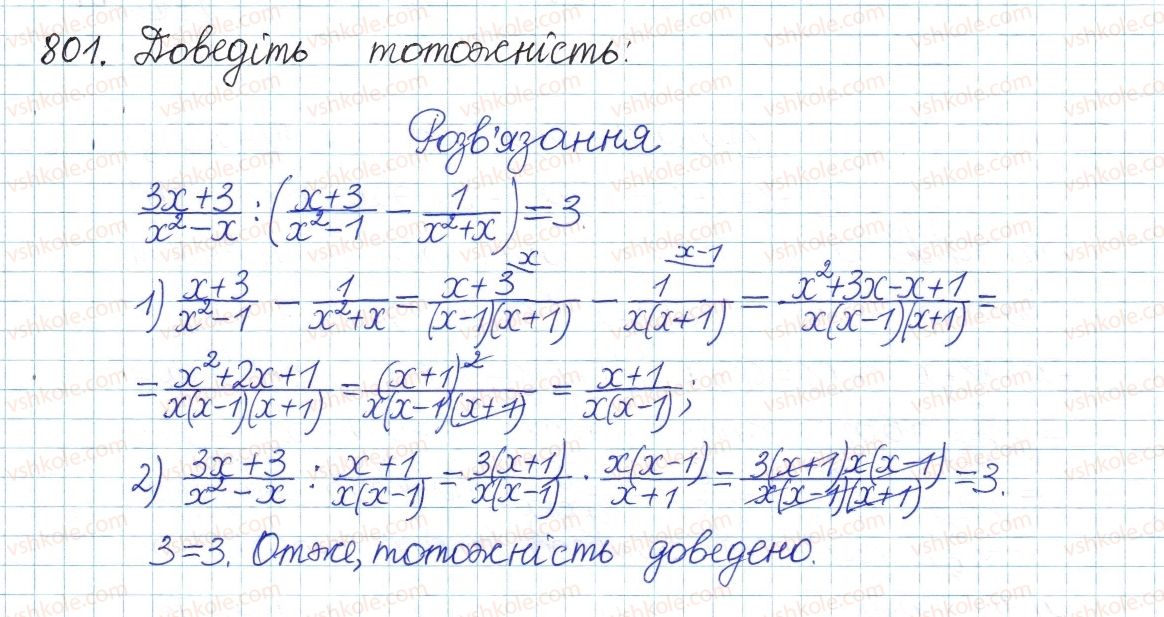 801. Доведіть тотожність:
Розв'язання
(3x+3)/(x²-x) : ((x+3)/(x²-1) - 1/(x²+x)) = 3.
1) (x+3)/(x²-1) - 1/(x²+x) = (x+3)^x/((x-1)(x+1)) - 1^(x-1)/(x(x+1)) = (x²+3x-x+1)/(x(x-1)(x+1)) =
= (x²+2x+1)/(x(x-1)(x+1)) = (x+1)²/(x(x-1)(x+1)) = (x+1)/(x(x-1));
2) (3x+3)/(x²-x) : (x+1)/(x(x-1)) = 3(x+1)/(x(x-1)) · x(x-1)/(x+1) = 3(x+1)x(x-1)/(x(x-1)(x+1)) = 3.
3=3. Отже, тотожність доведено.